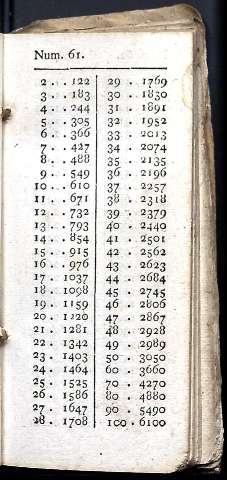 Num. 61.
2 . . 122
3 . . 183
4 . . 244
5 . . 305
6 . . 366
7 . . 427
8 . . 488
9 . . 549
10 . . 610
11 . . 671
12 . . 732
13 . . 793
14 . . 854
15 . . 915
16 . . 976
17 . 1037
18 . 1098
19 . 1159
20 . 1220
21 . 1281
22 . 1342
23 . 1403
24 . 1464
25 . 1525
26 . 1586
27 . 1647
28 . 1708
29 . 1769
30 . 1830
31 . 1891
32 . 1952
33 . 2013
34 . 2074
35 . 2135
36 . 2196
37 . 2257
38 . 2318
39 . 2379
40 . 2440
41 . 2501
42 . 2562
43 . 2623
44 . 2684
45 . 2745
46 . 2806
47 . 2867
48 . 2928
49 . 2989
50 . 3050
60 . 3660
70 . 4270
80 . 4880
90 . 5490
100 . 6100